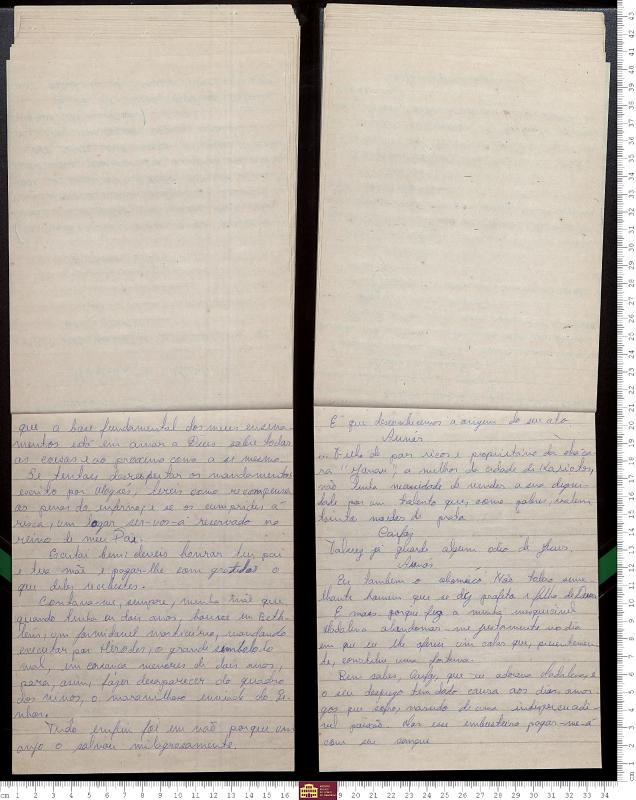 que a base fundamental dos meus ensina-
mentos está em amar a Deus sobre todas
as coisas e ao proximo como a si mesmo.
Se tentais desrespeitar os mandamentos
escrito por Moysés, tereis como recompensa
as penas do inferno, e se os cumprirdes á
risca, um logar ser-vos-á reservado no
reino de meu Pai.
Escutai bem: deveis honrar teu pai
e tua mãe e pagar-lhe com gratidão o
que deles recebestes.
Contava-me, sempre, minha mãe que
quando tinha eu dois anos, houve em Beth-
lém, um formidavel morticinio, mandando
executar por Herodes, o grande simbolo do
mal, em creanças menores de dois anos,
para, assim, fazer desaparecer do quadro
dos vivos, o maravilhoso enviado do Se-
nhor.
Tudo enfim foi em vão porque um
anjo o salvou milagrosamente.
É que desconhecemos a origem do seu ato
Anás
... Filho de pais ricos e proprietario da chaca-
ra "Janar" a melhor da cidade de Kariotos,
não tinha necessidade de vender a sua digni-
dade por um talento que, como sabes, valem
trinta moedas de prata
Caifaz
Talvez já guarde algum odio de Jesus.
Anás
Eu tambem o abomino. Não tolero seme-
lhante homem que se diz profeta e filho de Deus
E mais: porque fez a minha inesquecivel
Madalena abandonar-me justamente no dia
em que eu lhe oferecí um colar que,
constitui uma fortuna.
Bem sabes, Caifaz, que eu adorava Madalena, e
o seu desprezo tem dado causa aos dias amar-
gos que sofro movido de uma
vel paixão. Mas esse embusteiro pagar-me-á
com seu sangue